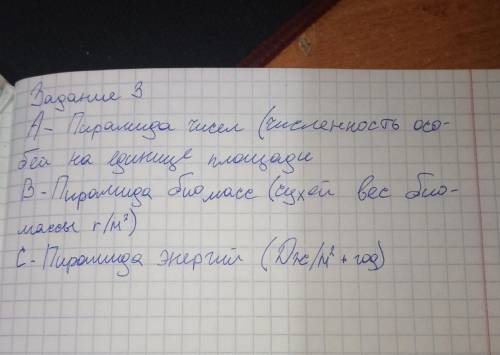 Задание 3
А- Пирамида чисел (численность осо-
бей на единице площади
В- Пирамида биомасс (сухой вес био-
массы г/м²)
С- Пирамида энергий (Дж/м² + год)